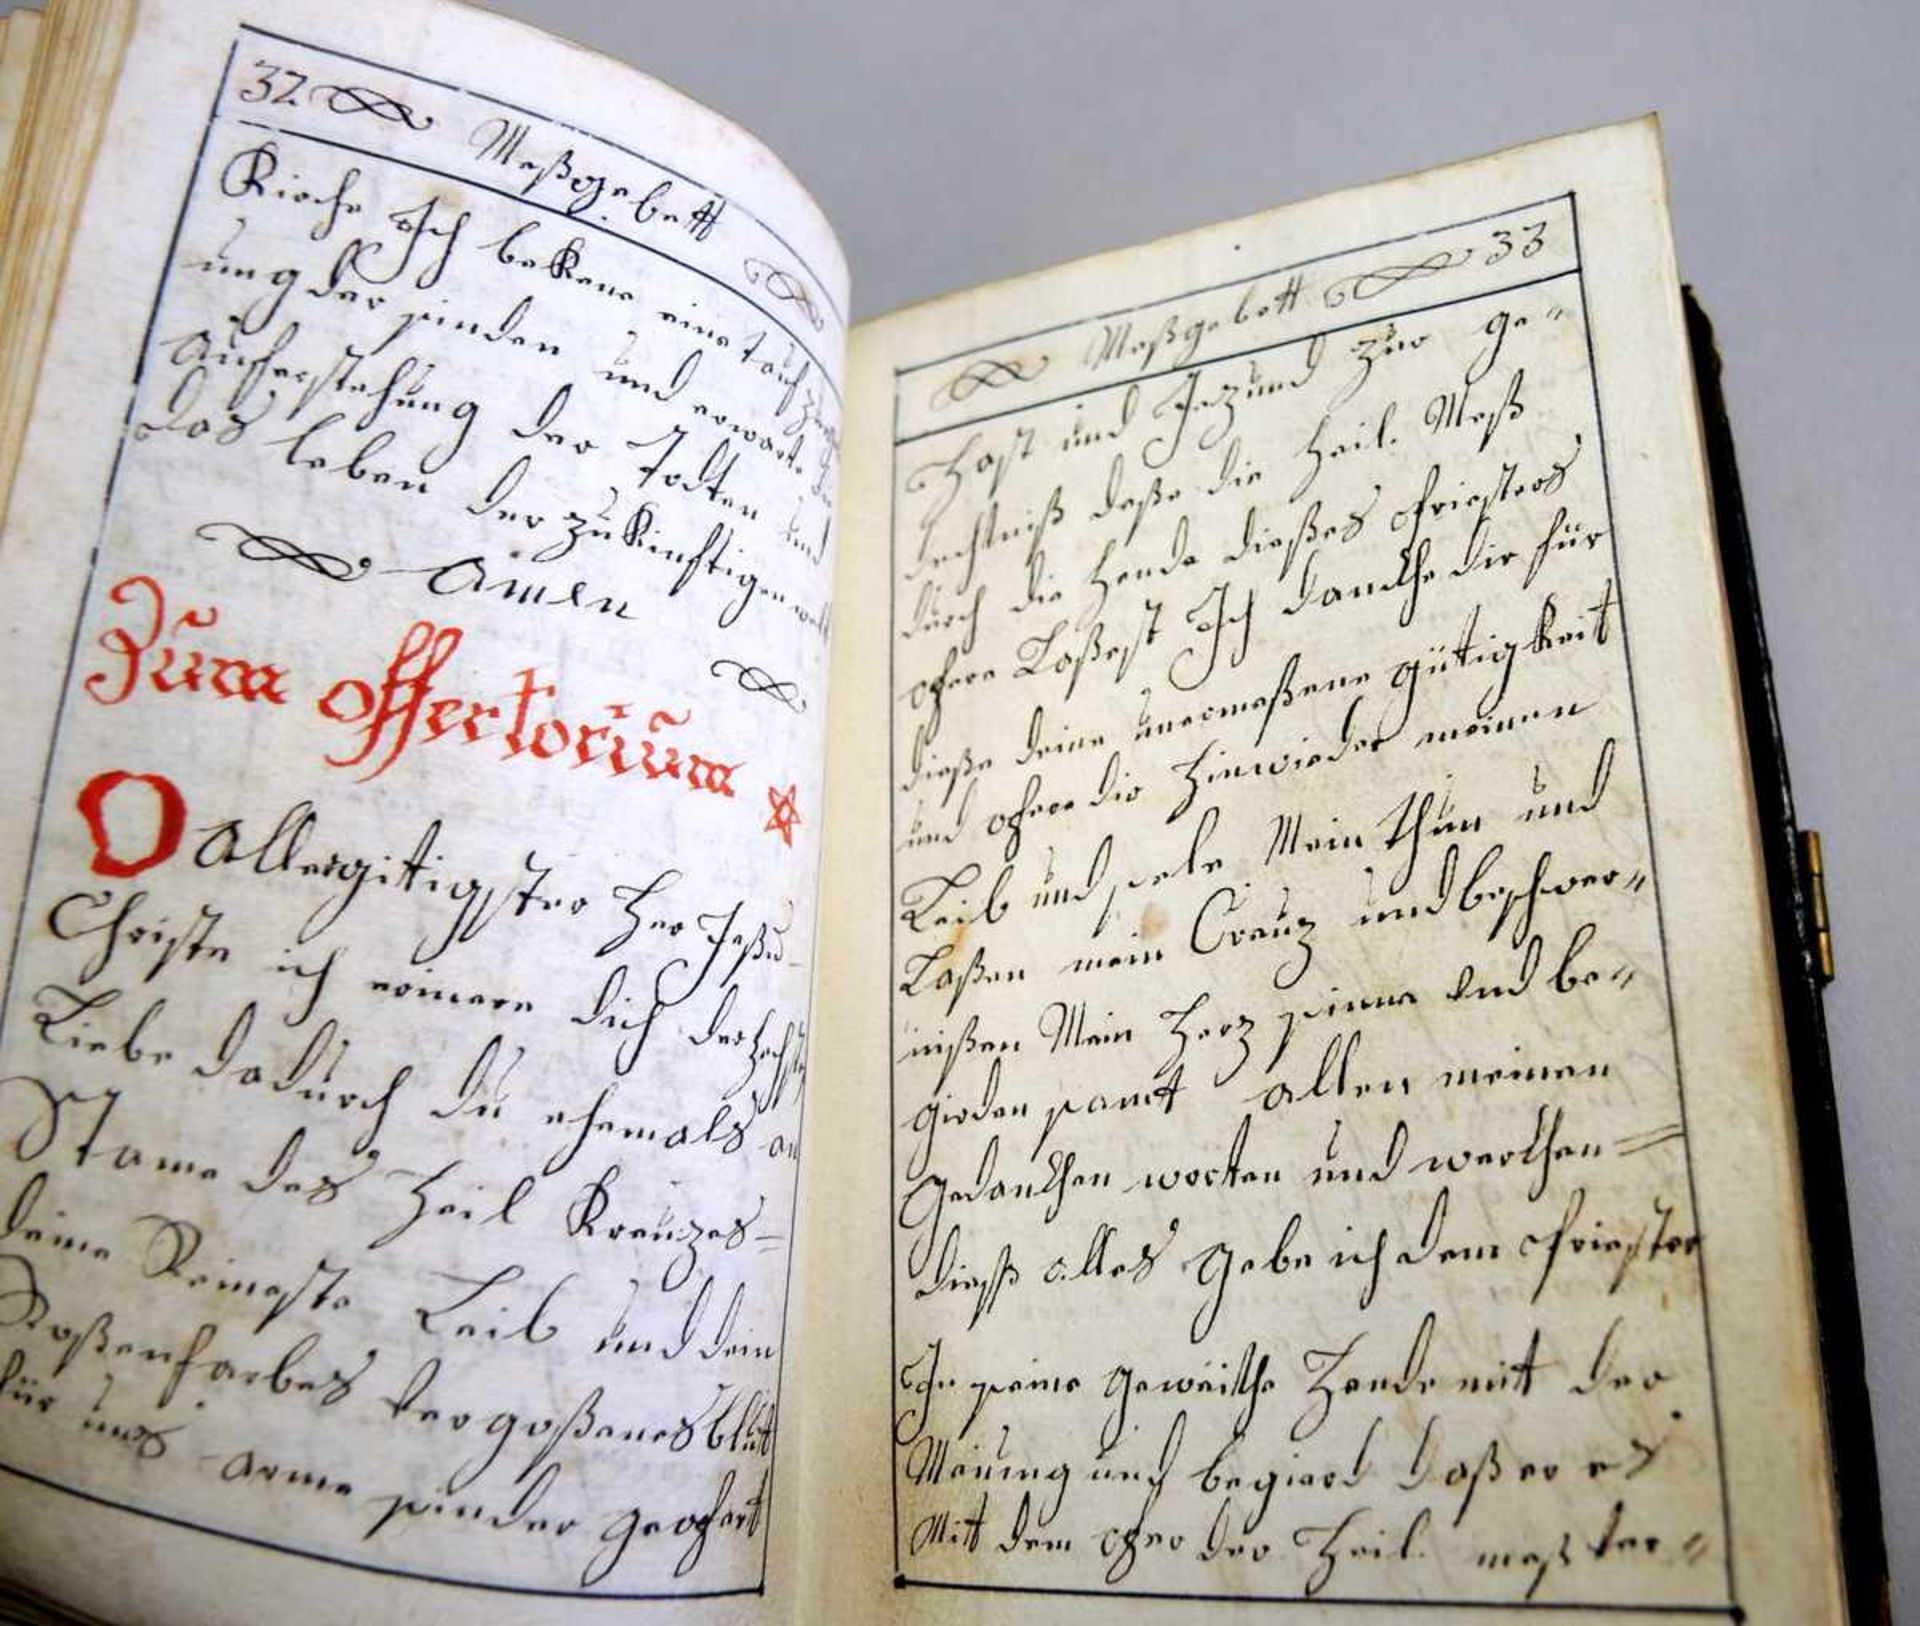 32 Meßgebett
Kirche Ich bekene eine tauf zur
ung der sinden und erwarte die
auferstehung der Todten und
das leben der zukinftigen welt
Amen
Zum offertorium
O allergitigster Her Jeßu
Christe ich erinere dich der hechste
Liebe dadurch du ehemals an
Stame des Heil Kreuzes
deine Reineste Leib und dein
Roßenfarbes vergoßenes blut
für uns arme sinder geopfert
Meßgebett 33
Hast und Jezund zur ge-
dechtniß deße die Heil. Meß
durch die Hende dießes Priesters
opfere Laßest Ich danckhe dir für
dieße deine unermaßene gütigkeit
und opfere dir hinwieder meinen
Leib und sele Mein thun und
Laßen mein Creuz und beschwer-
nißen Mein Herz sinne und be-
girden samt allen meinen
gedanckhen worten und werckhen
dieß alles gebe ich dem Priester
In seine geweichte Hende mit der
Meinung und begierd daß er es
Mit dem opfer der Heil. meß ver-